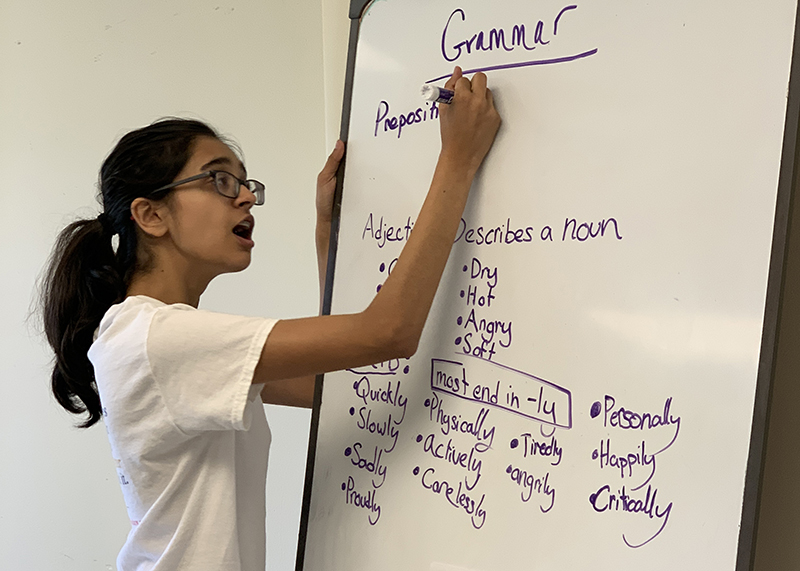 Grammar
Preposit
Adjecti Describes a noun
• Dry
• Hot
• Angry
• Soft
most end in -ly
• Quickly
• Slowly
• Sadly
• Proudly
• Physically
• Actively
• Carelessly
• Tiredly
• angrily
• Personally
• Happily
• Critically